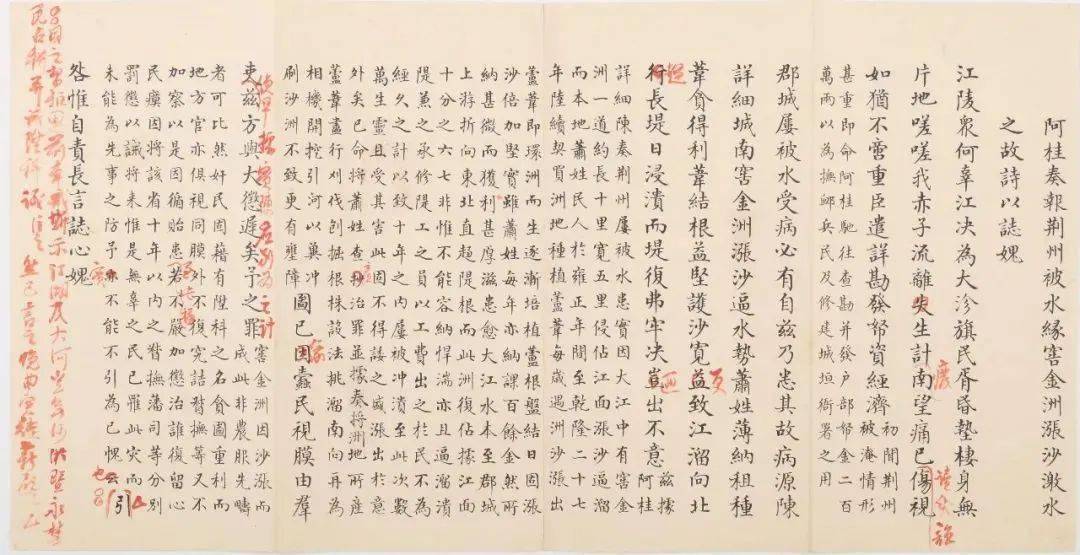 阿桂奏報荆州被水緣窖金洲漲沙激水
之故詩以誌愧
江陵衆何辜江决為大沴旗民胥昏墊棲身無
片地嗟嗟我赤子流離失生計南望痛已傷視
如猶不啻重臣遣詳勘發帑資經濟
初聞荆州被淹情形
甚重即命阿桂馳往查勘并發户部帑金二百
萬兩以為撫䘏兵民及修建城垣衙署之用
郡城屢被水受病必有自兹乃悉其故病源陳
詳細城南窖金洲漲沙逼水勢蕭姓薄納租種
葦貪得利葦結根益堅護沙寛益致江溜向北
行長堤日浸潰而堤復弗牢决豈出不意
兹據阿桂
詳細陳奏荆州屢被水患實因大江中有窖金
洲一道約長十里寛五里侵佔江面漲沙逼溜
而本地蕭姓民人于雍正年間至乾隆二十七
年陸續契買洲地種植蘆葦每歲遇洲沙漲出
蘆葦即環洲而生逐漸培植蘆根盤結日固漲
沙倍加堅實雖蕭姓每年亦納課百餘金然所
納甚微而獲利甚厚滋患愈大江水本至郡城
上游折向東北直趨隄根而此洲復佔據江面
十分之六七非惟不能容納悍湍亦且逼溜潰
隄兼之承修隄工之員以工費出之於民不為
經久之計以致十年之内屢被冲潰至此次數
萬生靈且受其害此固不得諉之盛漲出於意
外矣已命將蕭姓查抄治罪並據奏將洲地所產
蘆葦盡行刈伐刨掘根株設法挑溜南向再為
相機開挖引河以冀冲
刷沙洲不致更有壅障
圖已因蠧民視膜由羣
吏兹方與大懲遲矣予之罪
窖金洲因沙漲而
成此非農服先疇
者可比然奸民因藉有陞科之名貪圖重利而
地方官亦俱視同膜外不復究詰督撫等又不
加察以是因循貽患若不嚴加懲治誰復留心
民瘼因將該省十年以内之督撫藩司等分别
罰懲以諴將来惟是無辜之民已罹此灾而予
未能為先事之防予亦不能不引為已愧云
咎惟自責長言誌心愧